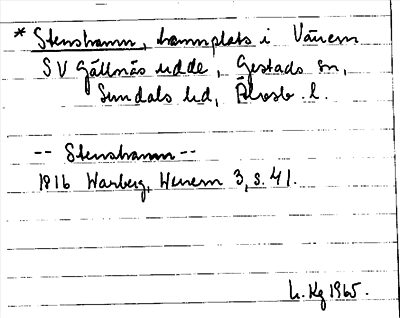 * Stenshamn, hamnplats i Vänern
SV Gällnäs udde, Gestads sn,
Sundals hd, Älvsb. l.
-- Stenshamn --
1816 Warberg, Wenern 3, s. 41.
L. Kg 1965.